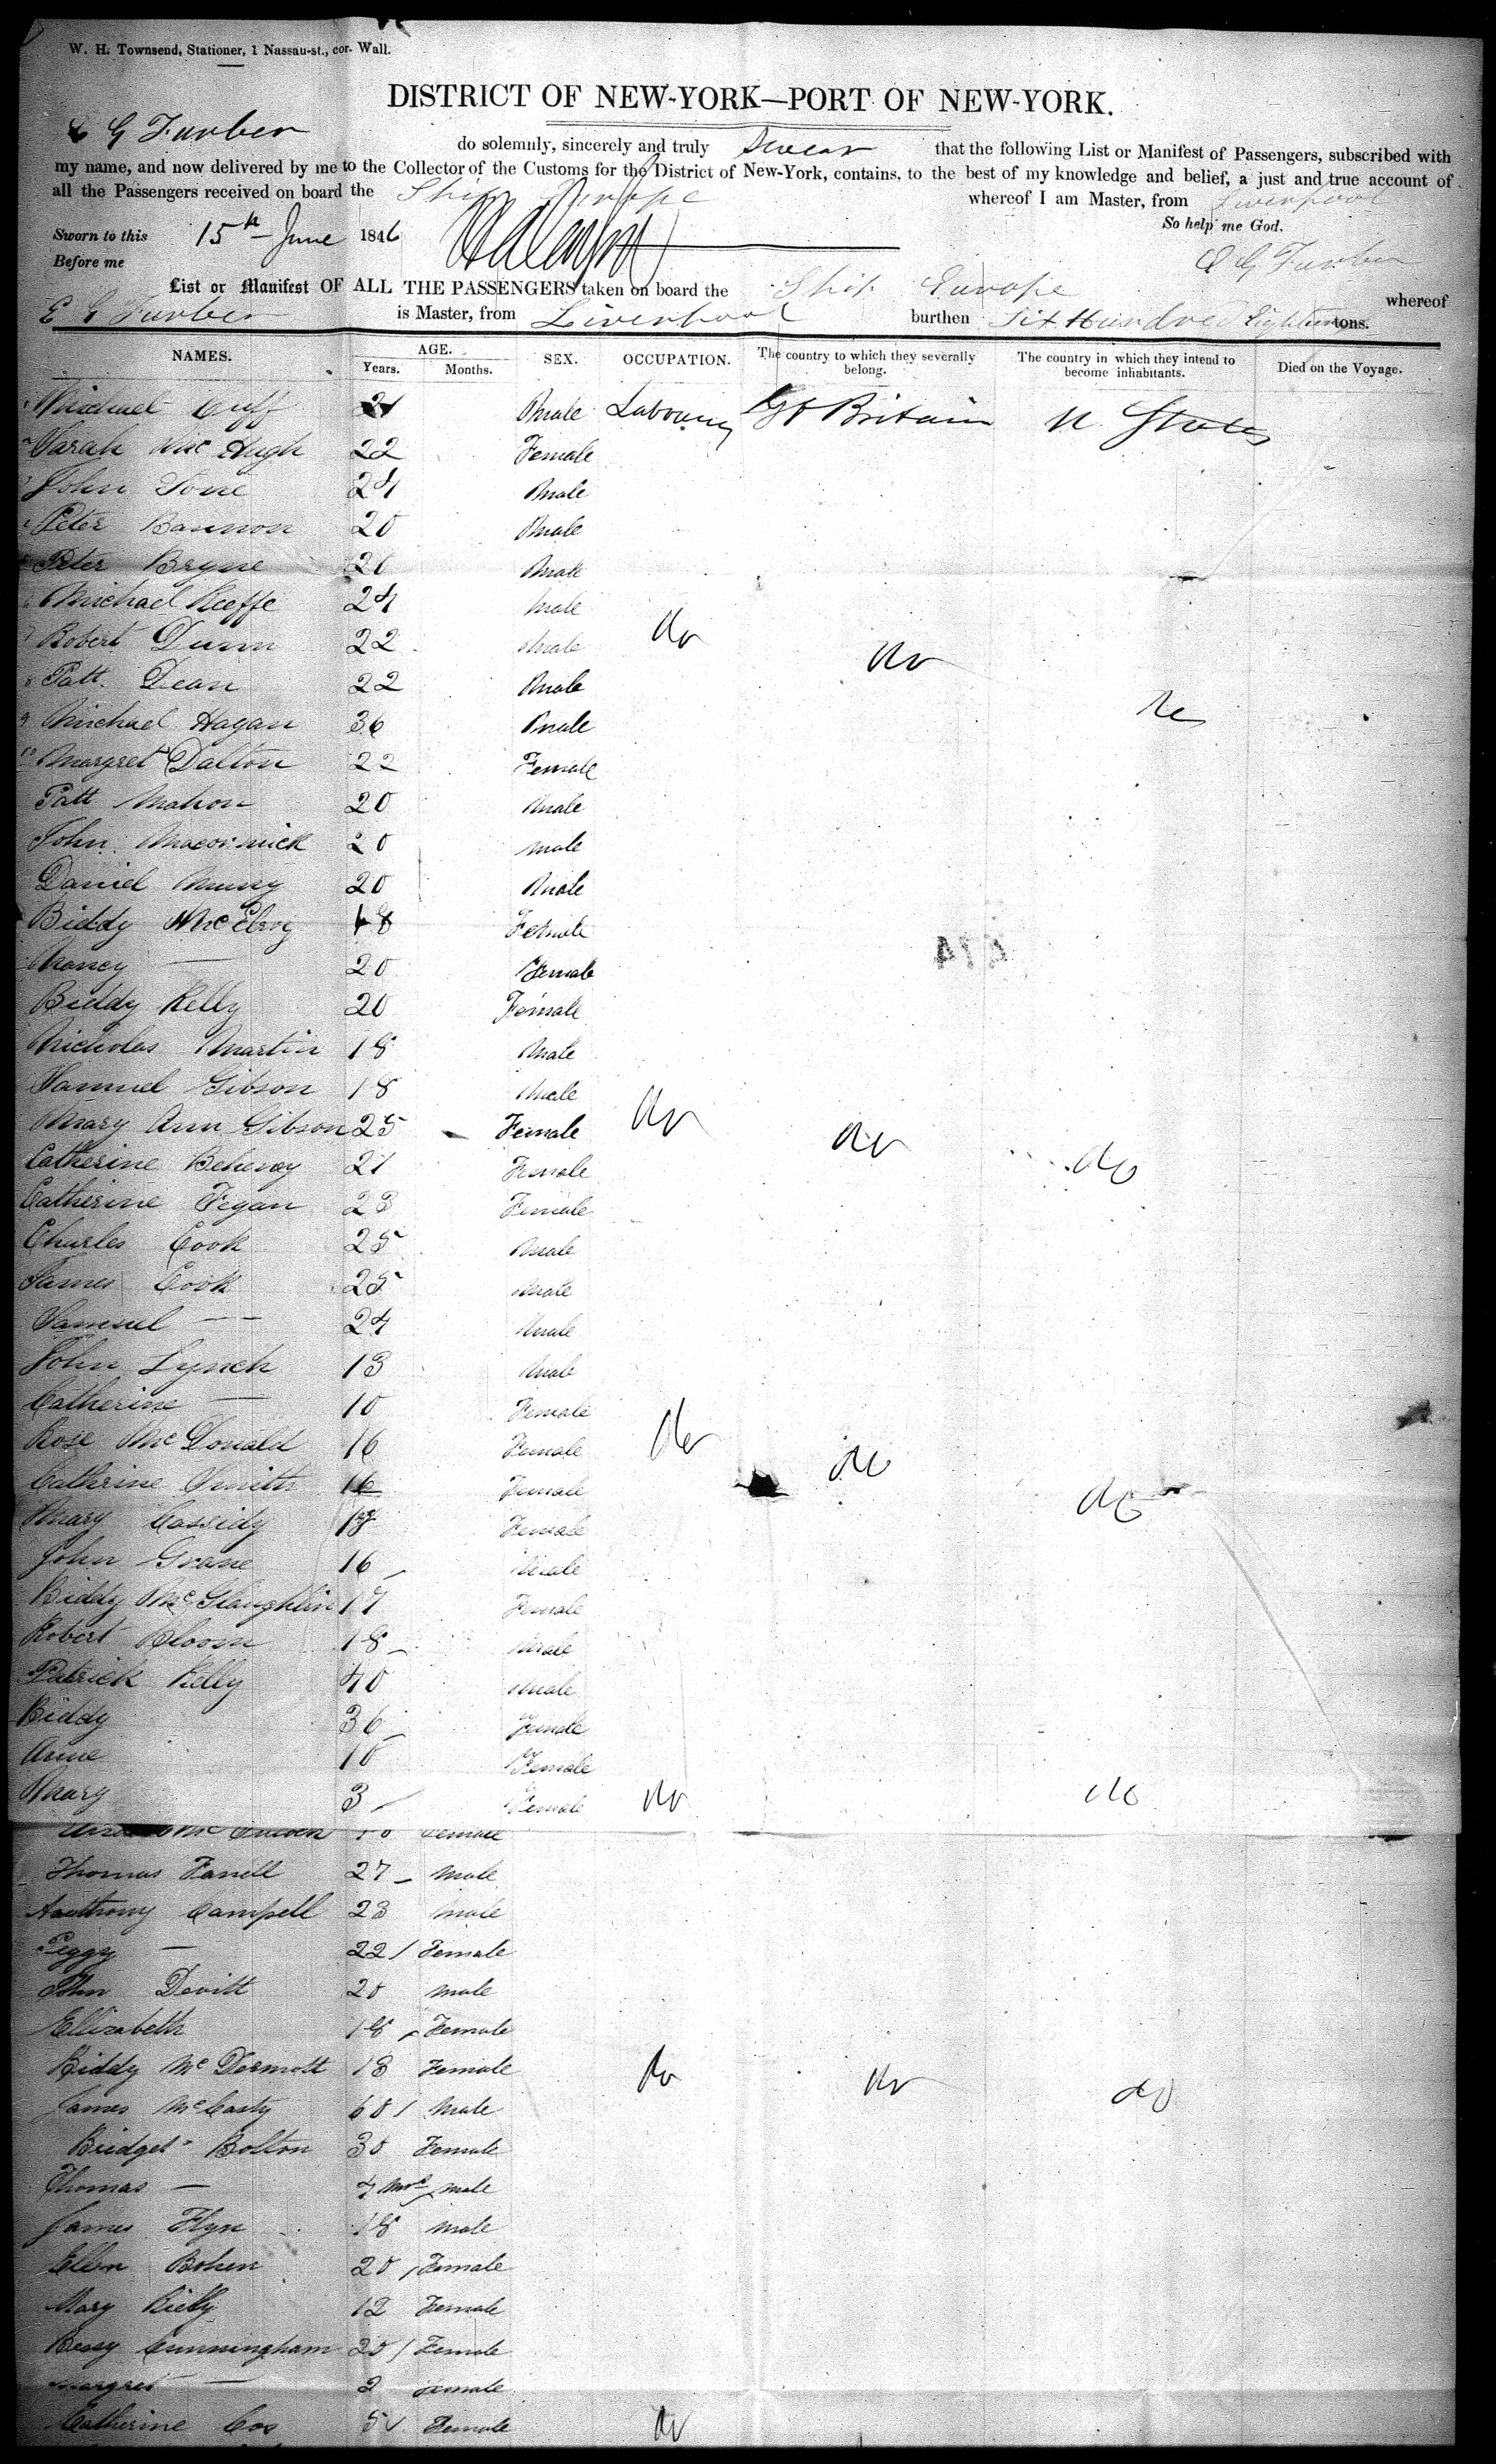 W. H. Townsend, Stationer, 1 Nassau-st., cor. Wall.
DISTRICT OF NEW-YORK—PORT OF NEW-YORK.
E G Furber do solemnly, sincerely and truly Swear that the following List or Manifest of Passengers, subscribed with
my name, and now delivered by me to the Collector of the Customs for the District of New-York, contains, to the best of my knowledge and belief, a just and true account of
all the Passengers received on board the Ship Europe whereof I am Master, from Liverpool
Sworn to this 15th June 1846 So help me God.
Before me E G Furber
List or Manifest OF ALL THE PASSENGERS taken on board the Ship Europe whereof
E G Furber is Master, from Liverpool burthen Six Hundred Eighteen tons.
NAMES. AGE. Years. Months. SEX. OCCUPATION. The country to which they severally belong. The country in which they intend to become inhabitants. Died on the Voyage.
1 Michael Cuff 21 Male Labourer Gt Britain U States
2 Sarah McHugh 22 Female
3 John Tone 24 Male
4 Peter Bannon 20 Male
5 Peter Bryne 20 Male
6 Michael Keeffe 24 Male
7 Robert Dunn 22 Male do do
8 Patt. Dean 22 Male do
9 Michael Hagan 36 Male
10 Margret Dalton 22 Female
Patt Mahon 20 Male
John Macormick 20 Male
Daniel Murry 20 Male
Biddy McElroy 18 Female
Nancy — 20 Female
Biddy Kelly 20 Female
Nicholas Martin 18 Male
Samuel Gibson 18 Male
Mary Ann Gibson 25 Female do do do
Catherine 21 Female
Catherine Fegan 23 Female
Charles Cook 25 Male
James Cook 25 Male
Samuel — 24 Male
John Lynch 13 Male
Catherine — 10 Female
Rose McDonald 16 Female do do
Cathrine Smith 16 Female do
Mary Cassidy 18 Female
John Grane 16 Male
Biddy McGlaughlin 17 Female
Robert Bloom 18 Male
Patrick Kelly 40 Male
Biddy 36 Female
Anne 10 Female
Mary 3 Female do do
Female
Thomas Farrell 27 Male
Anthony Campell 23 Male
Peggy — 22 Female
John Devitt 20 Male
Ellizabeth 18 Female
Biddy McDermott 18 Female do do do
James McCarty 60 Male
Bridget Bolton 30 Female
Thomas — 7 mos male
James Flyn 18 male
Ellen Bohen 20 Female
Mary Rielly 12 Female
Bessy Cunningham 20 Female
Margret — 2 Female
Catherine Cos 5 Female do